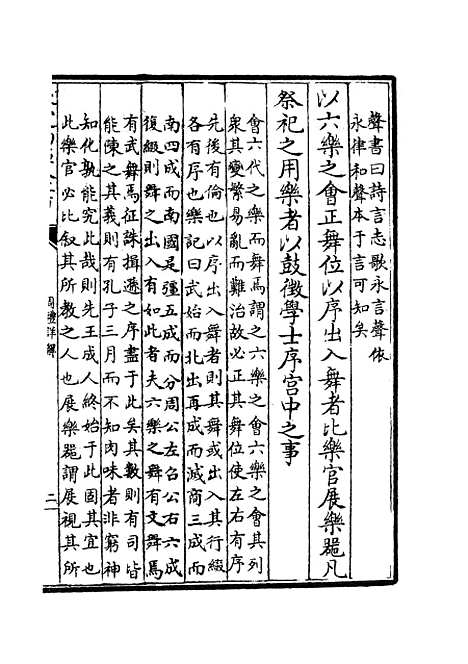 聲書曰詩言志歌永言聲依
永律和聲本于言可知矣
以六樂之會正舞位以序出入舞者比樂官展樂器凡
祭祀之用樂者以鼓徵學士序宫中之事
會六代之樂而舞焉謂之六樂之會六樂之會其列
衆其變繁易亂而難治故必正其舞位使左右有序
先後有倫也以序出入舞者則其舞或出入其行綴
各有序也樂記曰武始而北出再成而滅商三成而
南四成而南國是疆五成而分周公左召公右六成
復綴則舞之出入有如此者夫六樂之舞有文舞焉
有武舞焉征誅揖遜之序盡于此矣其數則有司皆
能陳之其義則有孔子三月而不知肉味者非窮神
知化孰能究此哉則先王成人終始于此固其宜也
此樂官必比叙其所教之人也展樂器謂展視其所
周禮詳解
二